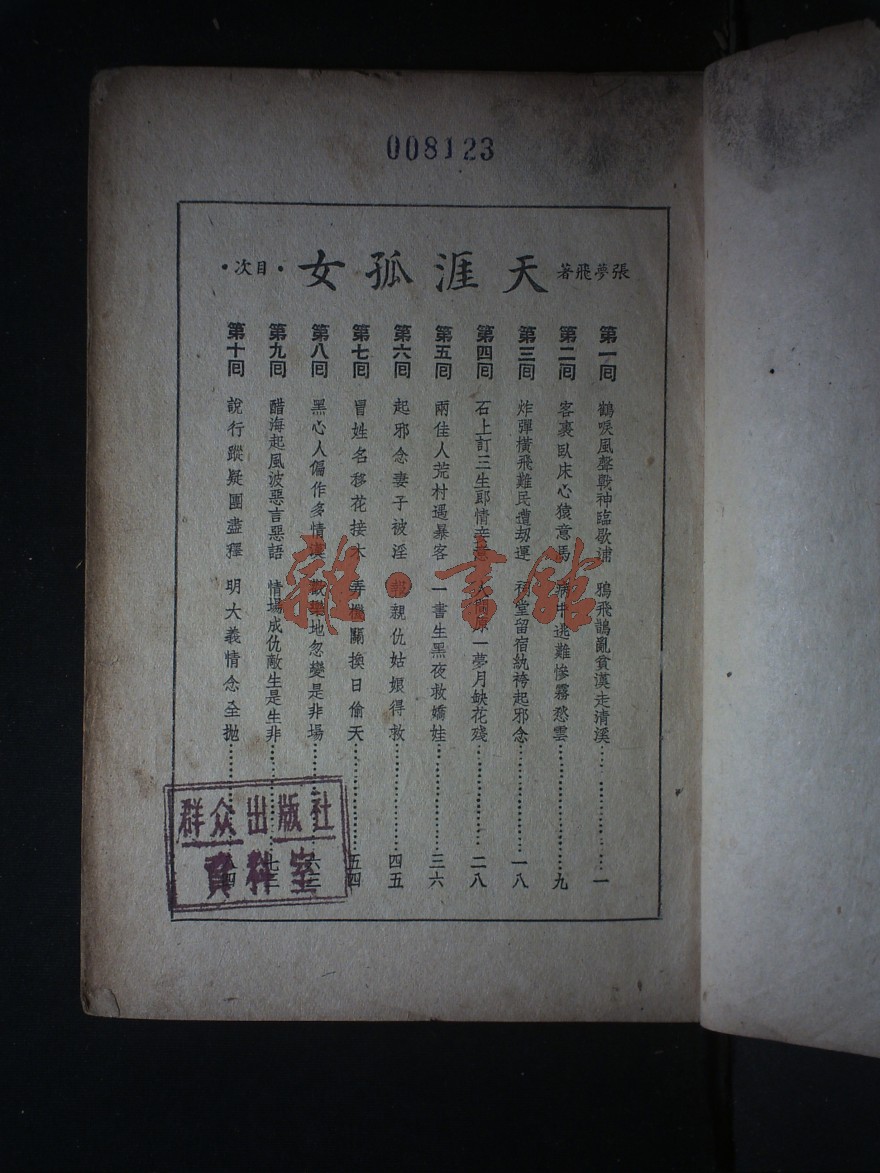 008123
張夢飛著 天涯孤女 ·目次·
第一回 鶴唳風聲戰神臨歇浦 鴉飛鵲亂貧漢走清溪…………一
第二回 客裏臥床心猿意馬 病中逃難慘霧愁雲…………九
第三回 炸彈橫飛難民遭刼運 祠堂留宿紈袴起邪念…………一八
第四回 石上訂三生郎情妾意 人間原一夢月缺花殘…………二八
第五回 兩佳人荒村遇暴客 一書生黑夜救嬌娃…………三六
第六回 起邪念妻子被淫 報親仇姑娘得救…………四五
第七回 冒姓名移花接木 弄機關換日偷天…………五四
第八回 黑心人偏作多情漢 歡樂地忽變是非場…………六三
第九回 醋海起風波惡言惡語 情場成仇敵生是生非…………七三
第十回 說行蹤疑團盡釋 明大義情念全拋…………四
群众出版社
資料室
雜·書館